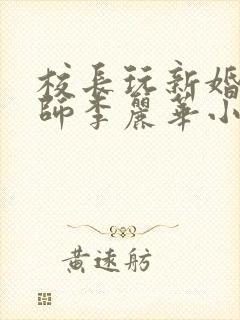 校長玩新婚
師李麗華小
黃遠舫